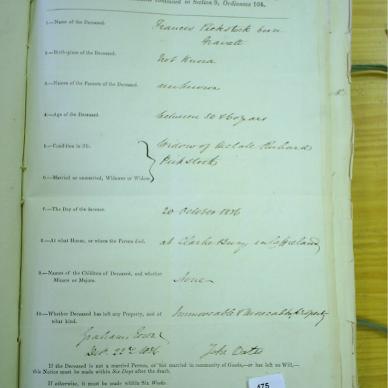 contained in Section 9, Ordinance 104.
1.—Name of the Deceased. Frances Pickstock born
2.—Birth-place of the Deceased. Not Known
3.—Names of the Parents of the Deceased. unknown
4.—Age of the Deceased. Between 50 & 60 years
5.—Condition in life. Widow of the late Richard
Pickstock
6.—Married or unmarried, Widower or Widow
7.—The Day of the decease. 20 October 1836
8.—At what House, or where the Person died. at Clarke Bury in Caffreland
9.—Names of the Children of Deceased, and whether None
Minors or Majors.
10.—Whether Deceased has left any Property, and of Immovable & Movable Property
what kind.
Graham's Town
If the Deceased is not a married Person, or not married in community of Goods,—or has left no Will,—
this Notice must be made within Six Days after the death.
If otherwise, it must be made within Six Weeks.
475